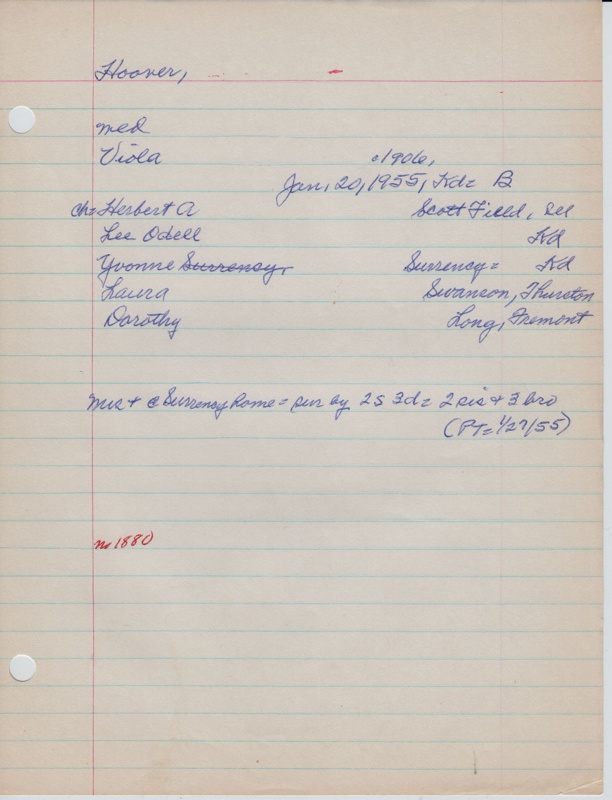 Hoover,
med
Viola c1906,
Jan, 20, 1955, Kd= B
ch= Herbert A Scott Field, Ill
Lee Odell Kd
Yvonne Surrency, Surrency= Kd
Laura Swanson, Thurston
Dorothy Long, Fremont
Mrs + @ Surrency home = sur by 2s 3d = 2 sis + 3 bro
(PT= 1/27/55)
no 1880